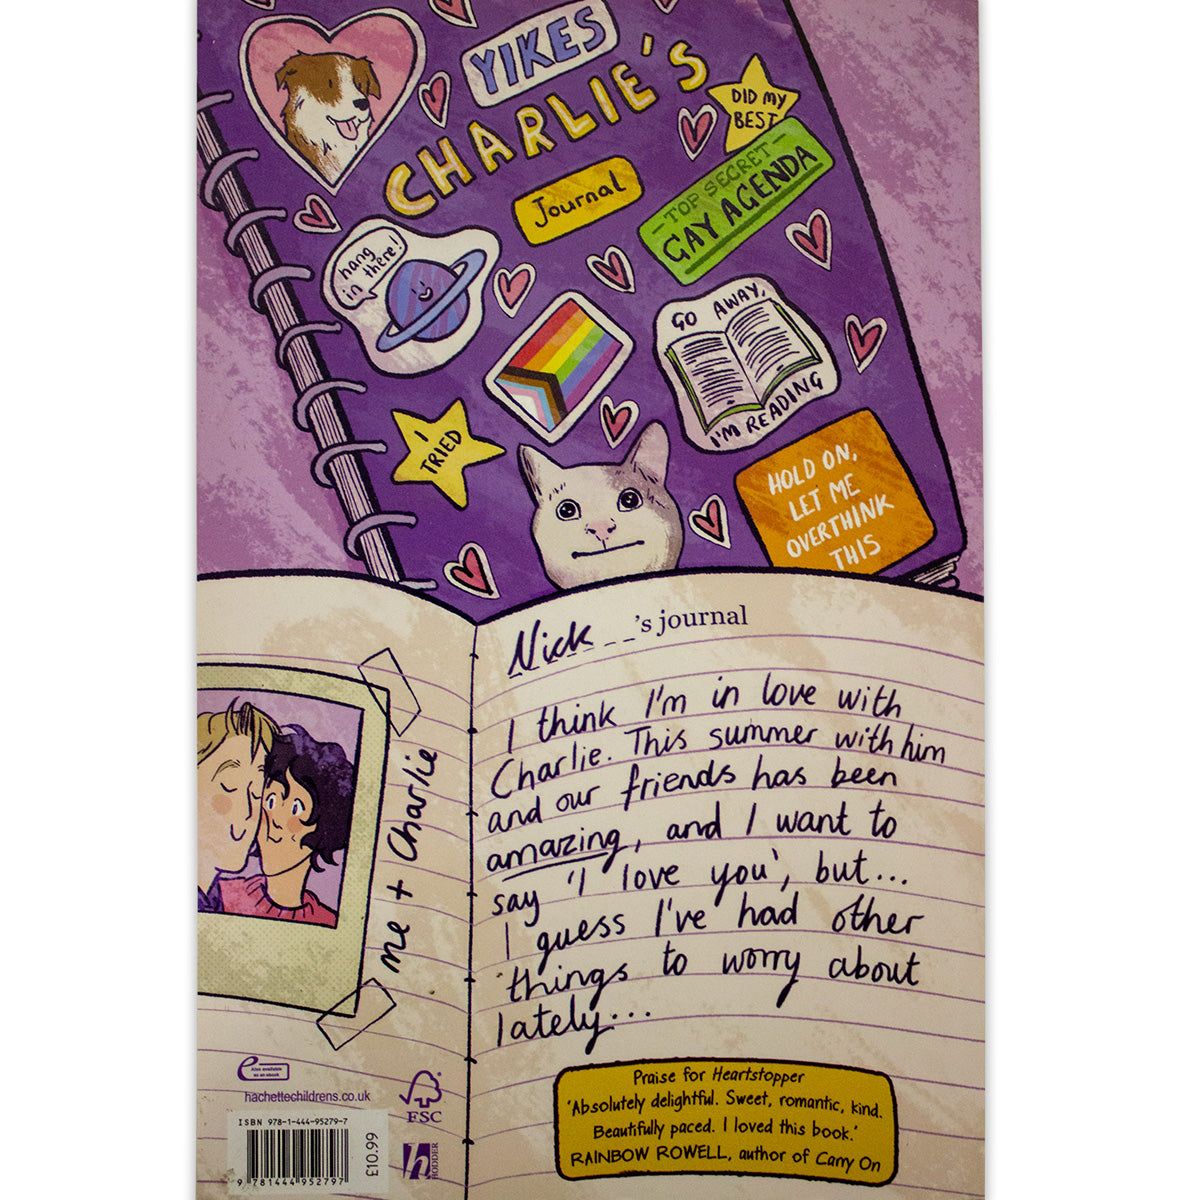 YIKES
CHARLIE'S
Journal
DID MY
BEST
-TOP SECRET-
GAY AGENDA
hang
in there!
GO AWAY,
I'M READING
I
TRIED
HOLD ON,
LET ME
OVERTHINK
THIS
Nick __'s journal
I think I'm in love with
Charlie. This summer with him
and our friends has been
amazing, and I want to
say 'I love you', but...
I guess I've had other
things to worry about
lately...
me + Charlie
Also available
as an ebook
hachettechildrens.co.uk
FSC
ISBN 978-1-444-95279-7
9 781444 952797
£10.99
h
HODDER
Praise for Heartstopper
'Absolutely delightful. Sweet, romantic, kind.
Beautifully paced. I loved this book.'
RAINBOW ROWELL, author of Carry On